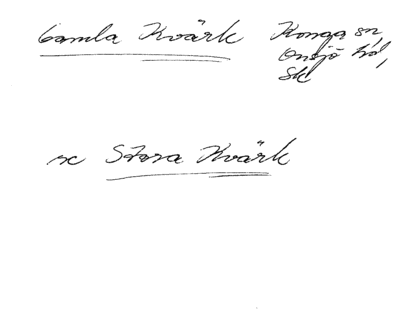 Gamla Kvärk Konga sn,
Onsjö hd,
Sk
se Stora Kvärk